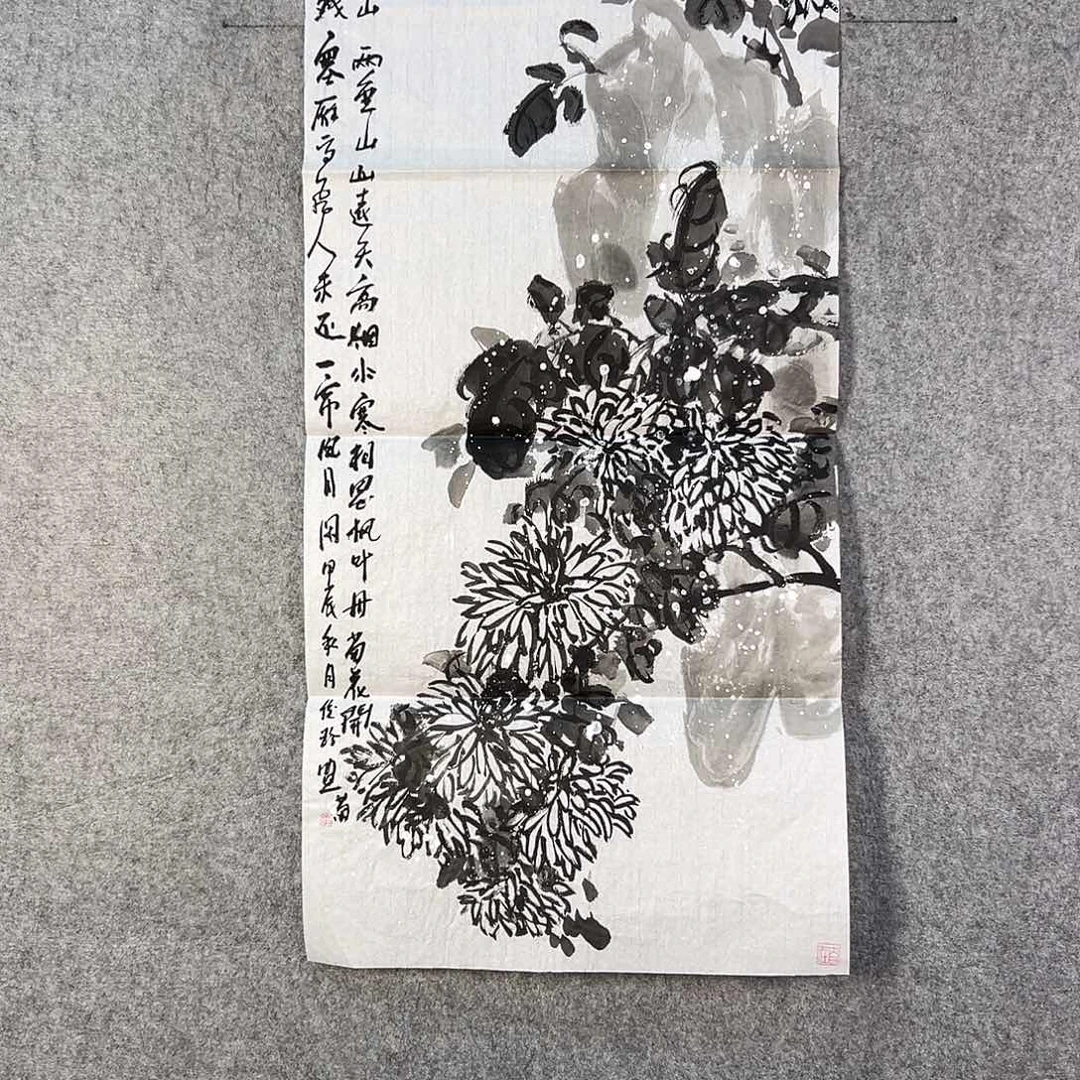 山两重山山遠天高烟水寒相思枫叶丹菊花開菊
残塞雁高飞人未还一帘风月闲甲辰秋月